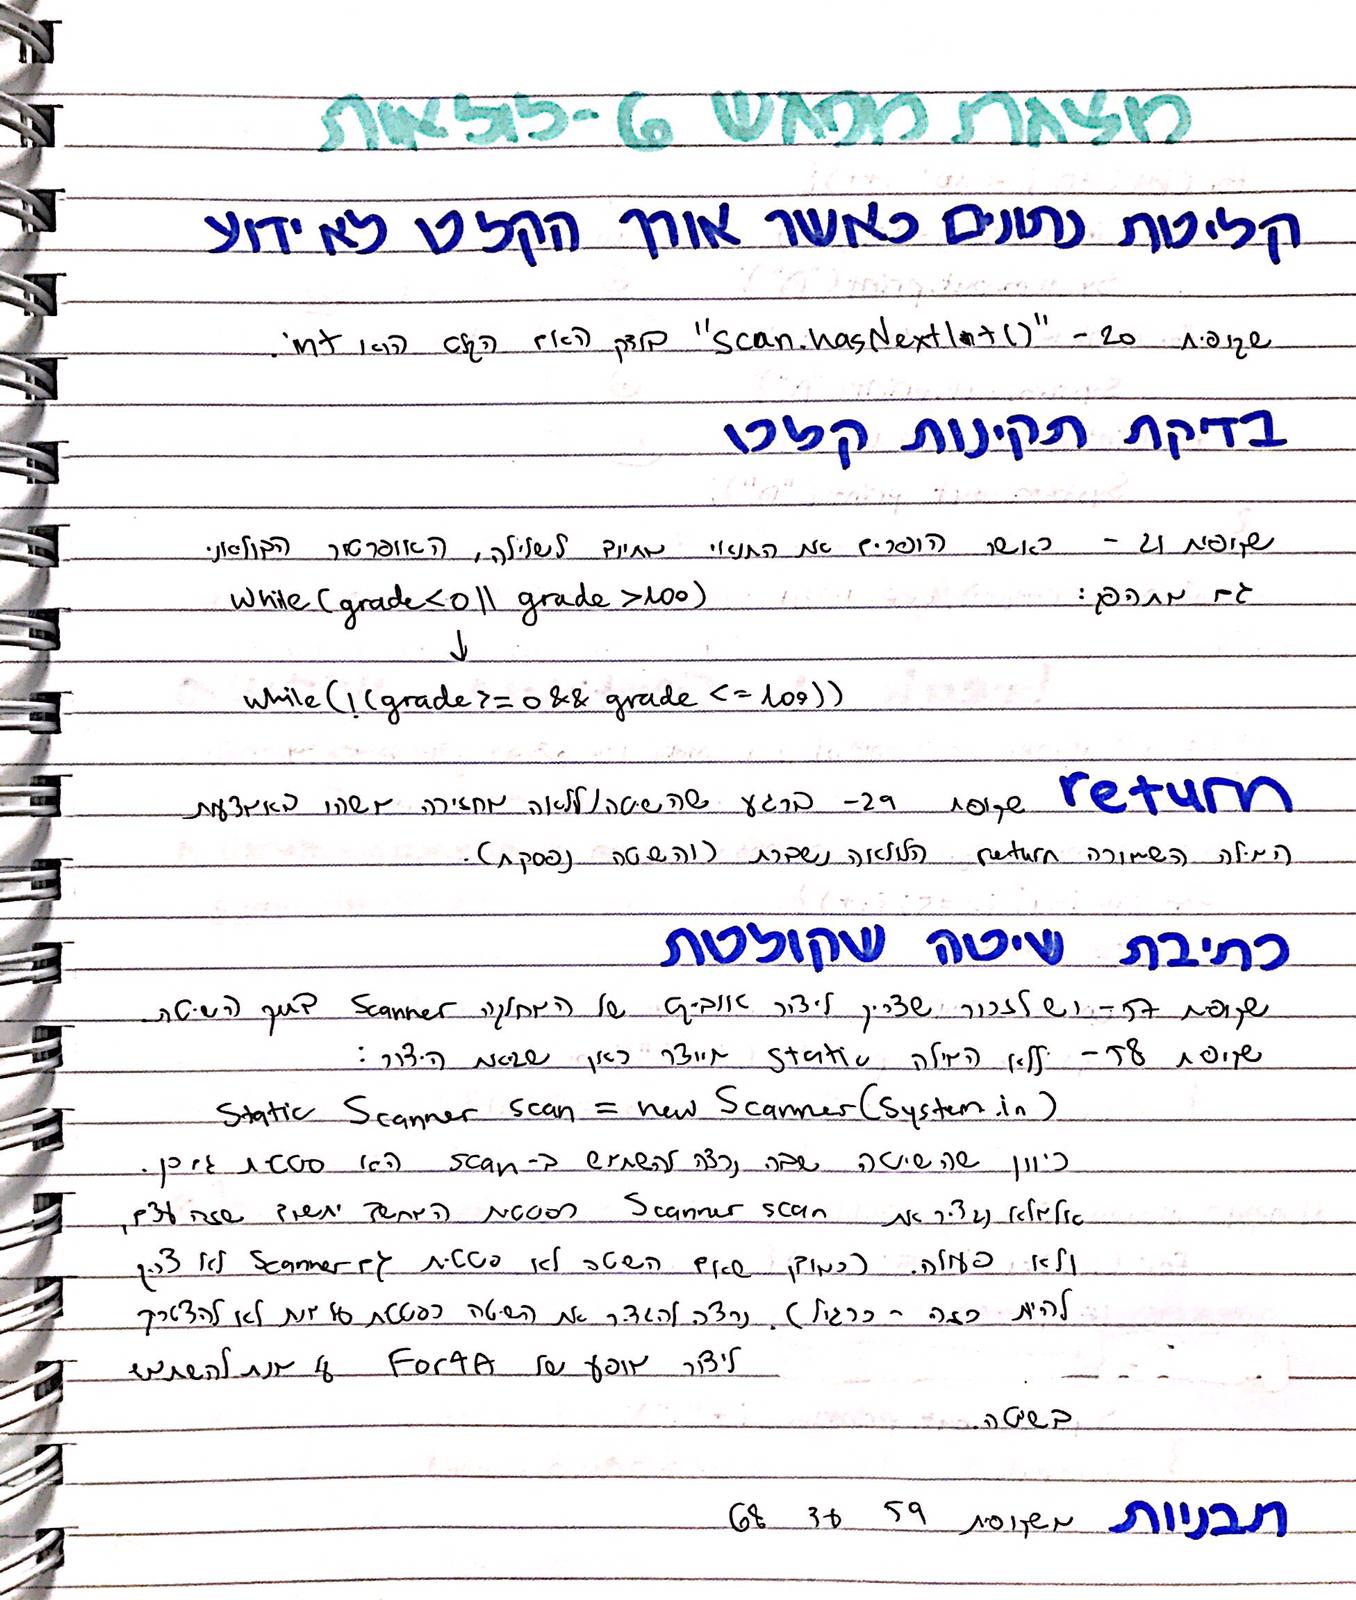 מצגת מפגש 6 - לולאות
קליטת נתונים כאשר אורך הקלט לא ידוע
שקופית 20 - "scan.hasNextInt()" בודק האם הקלט הוא int.
בדיקת תקינות קלט
שקופית 21 - כאשר הופכים את התנאי מחיוב לשלילה, האופרטור הבוליאני
גם מתהפך: while(grade<0|| grade >100)
↓
while(!(grade>=0 && grade <=100))
return שקופית 29- ברגע שהשיטה/לולאה מחזירה משהו באמצעות
המילה השמורה return הלולאה נשברת (והשיטה נפסקת).
כתיבת שיטה שקולטת
שקופית 57- יש לזכור שצריך ליצור אובייקט של המחלקה Scanner בתוך השיטה.
שקופית 58- ללא המילה static תיווצר כאן שגיאת הידור:
Static Scanner scan = new Scanner(System.in)
כיוון שהשיטה שבה נרצה להשתמש ב-scan היא סטטית גם כן.
אלמלא נגדיר את Scanner scan כסטטית המחשב יחשוב שזה עצם,
ולא פעולה. (כמובן שאם השיטה לא סטטית גם Scanner לא צריך
להיות כזה - כרגיל). נרצה להגדיר את השיטה כסטטית על מנת לא להצטרך
ליצור מופע של For4A על מנת להשתמש
בשיטה.
תבניות משקופית 59 עד 68